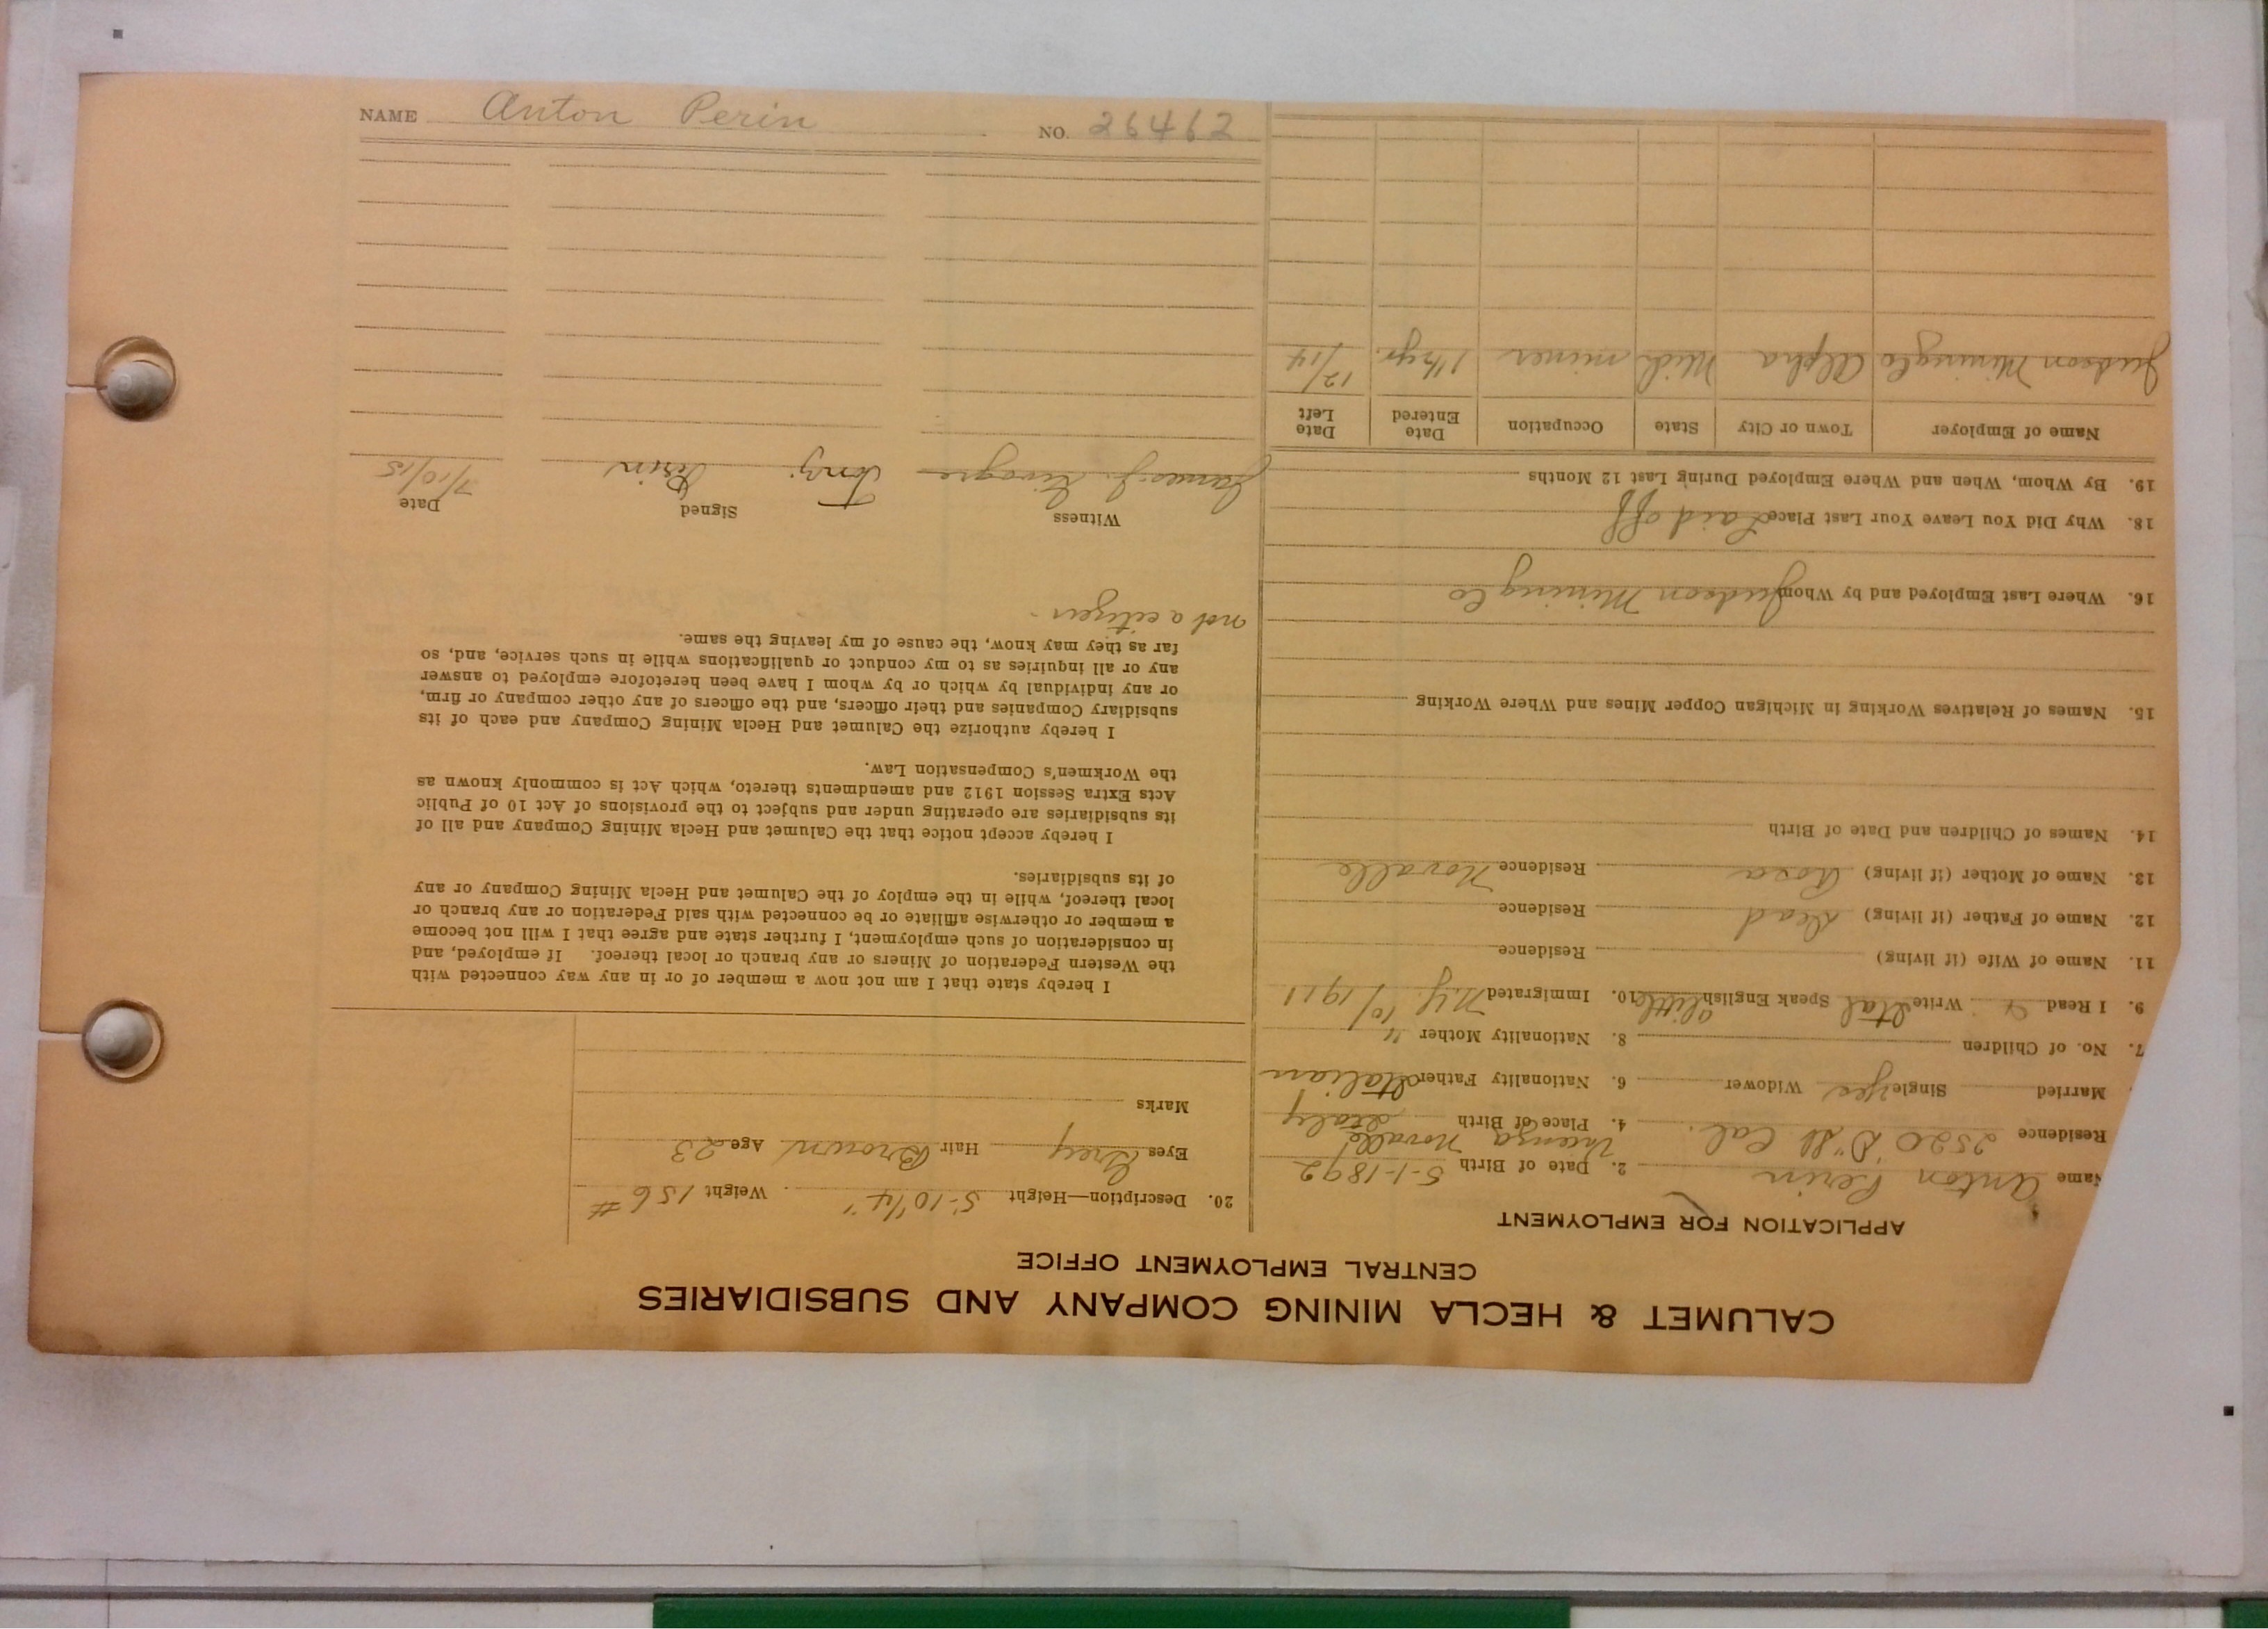 NAME Anton Perin NO. 26462
CALUMET & HECLA MINING COMPANY AND SUBSIDIARIES
CENTRAL EMPLOYMENT OFFICE
APPLICATION FOR EMPLOYMENT
Name Anton Perin 2. Date of Birth 5-1-1892
Residence 2520 "D" St Cal. 4. Place of Birth Vicenza Novalle Italy
Married Single Yes Widower 6. Nationality Father Italian
7. No. of Children 8. Nationality Mother "
9. I Read & Write Ital Speak English a little 10. Immigrated N.Y. 10/1911
11. Name of Wife (if living) Residence
12. Name of Father (if living) Dead Residence
13. Name of Mother (if living) Rosa Residence Novalle
14. Names of Children and Date of Birth
15. Names of Relatives Working in Michigan Copper Mines and Where Working
16. Where Last Employed and by Whom Judson Mining Co
18. Why Did You Leave Your Last Place Laid off
19. By Whom, When and Where Employed During Last 12 Months
Name of Employer Town or City State Occupation Date Entered Date Left
Judson Mining Co Alpha Mich miner 1½ yr. 12/14
20. Description—Height 5'-10¼" Weight 156 #
Eyes Grey Hair Brown Age 23
Marks
I hereby state that I am not now a member of or in any way connected with
the Western Federation of Miners or any branch or local thereof. If employed, and
in consideration of such employment, I further state and agree that I will not become
a member or otherwise affiliate or be connected with said Federation or any branch or
local thereof, while in the employ of the Calumet and Hecla Mining Company or any
of its subsidiaries.
I hereby accept notice that the Calumet and Hecla Mining Company and all of
its subsidiaries are operating under and subject to the provisions of Act 10 of Public
Acts Extra Session 1912 and amendments thereto, which Act is commonly known as
the Workmen's Compensation Law.
I hereby authorize the Calumet and Hecla Mining Company and each of its
subsidiary Companies and their officers, and the officers of any other company or firm,
or any individual by which or by whom I have been heretofore employed to answer
any or all inquiries as to my conduct or qualifications while in such service, and, so
far as they may know, the cause of my leaving the same.
not a citizen -
Witness Signed Date
James J. Tony Perin 7/10/15